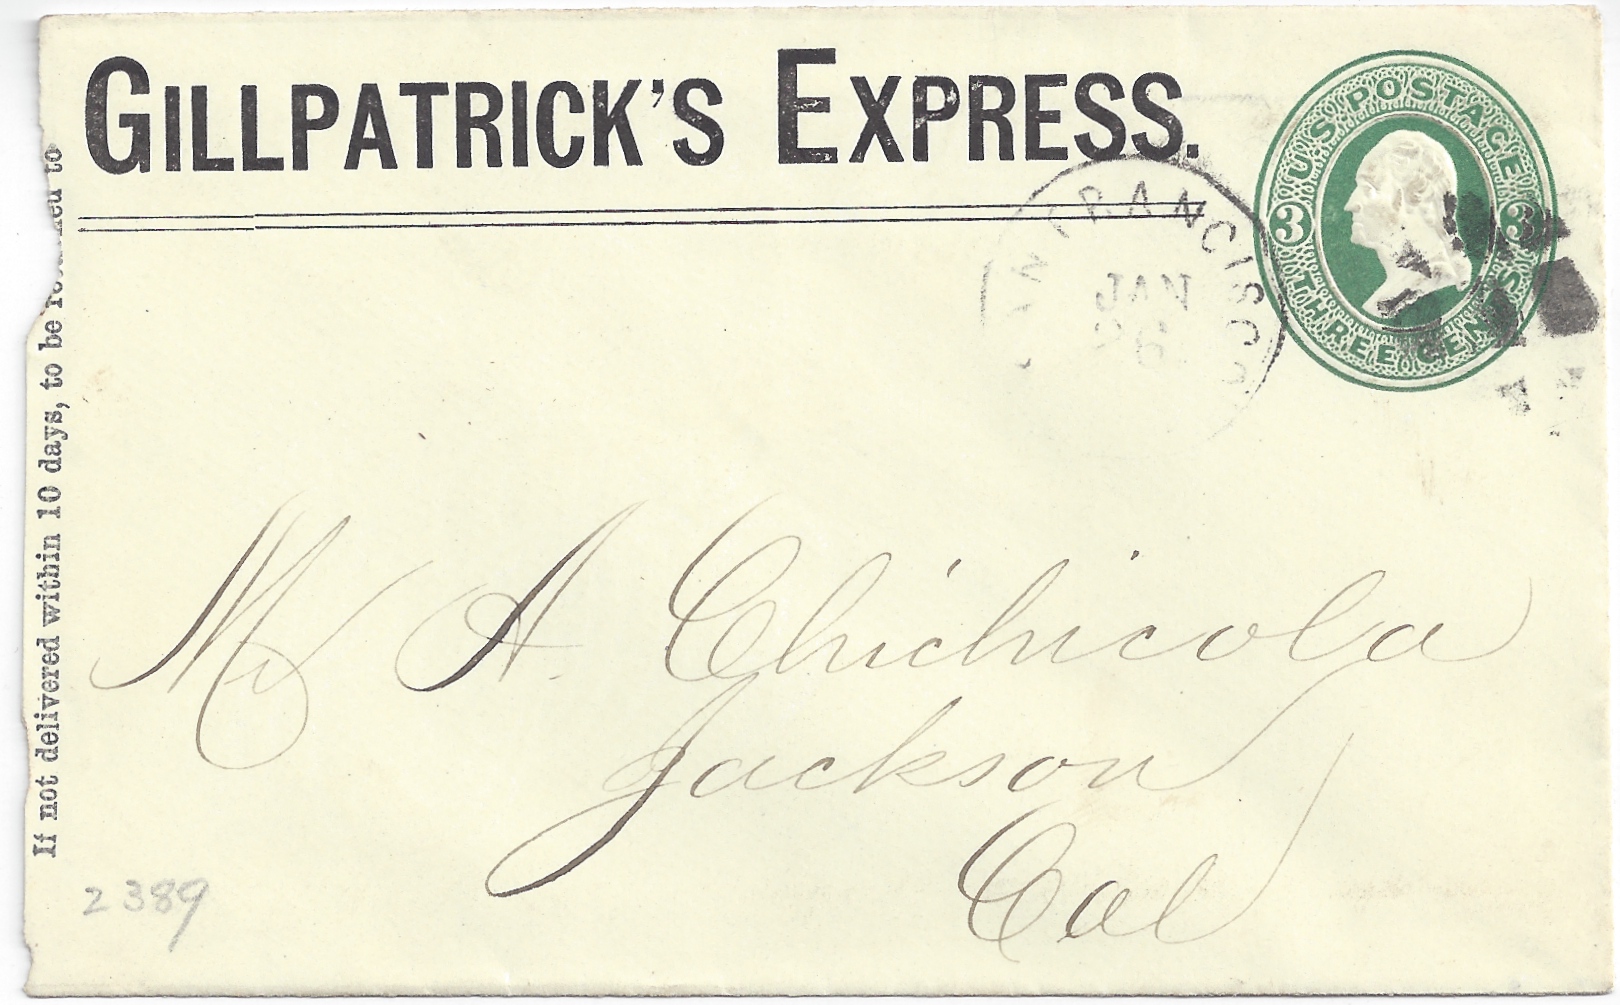 GILLPATRICK'S EXPRESS.
U.S. POSTAGE
3 3
THREE CENTS
SAN FRANCISCO
JAN
26
If not delivered within 10 days, to be returned to
Mr A. Chichicola
Jackson
Cal
2389